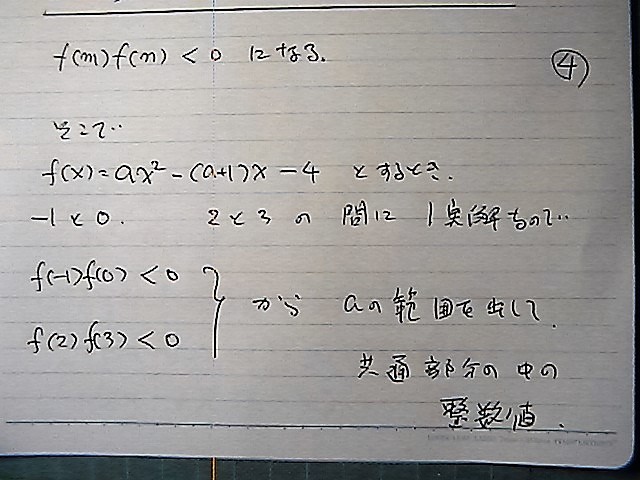 f(m)f(n) < 0 になる.
④
そこで‥
f(x) = ax² - (a+1)x - 4 とするとき.
-1と0. 2と3の間に1実解もので‥
f(-1)f(0) < 0
f(2)f(3) < 0
から aの範囲を出して.
共通部分の中の
整数値.